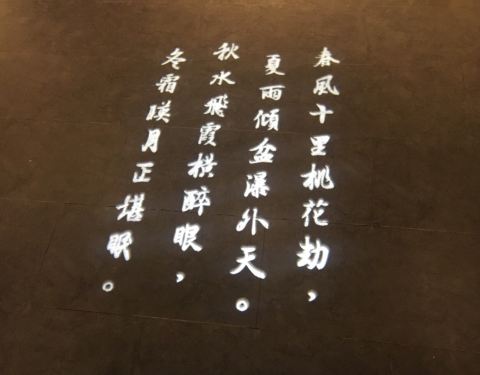 春風十里桃花劫，
夏雨傾盆瀑外天。
秋水飛霞橫醉眼，
冬霜暎月正堪眠。